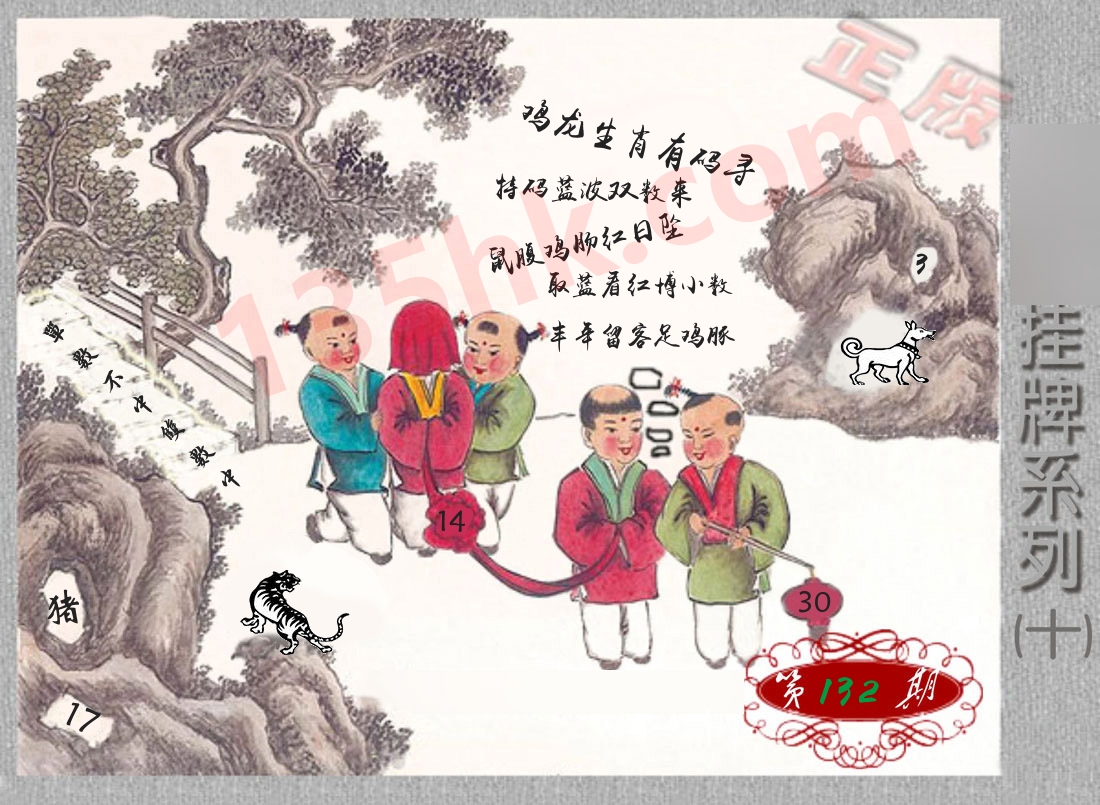 正版
鸡龙生肖有码寻
特码蓝波双数来
鼠腹鸡肠红日坠
取蓝看红博小数
丰年留客足鸡豚
135hk.com
單數不中雙數中
3
14
30
猪
17
第132期
挂牌系列(十)